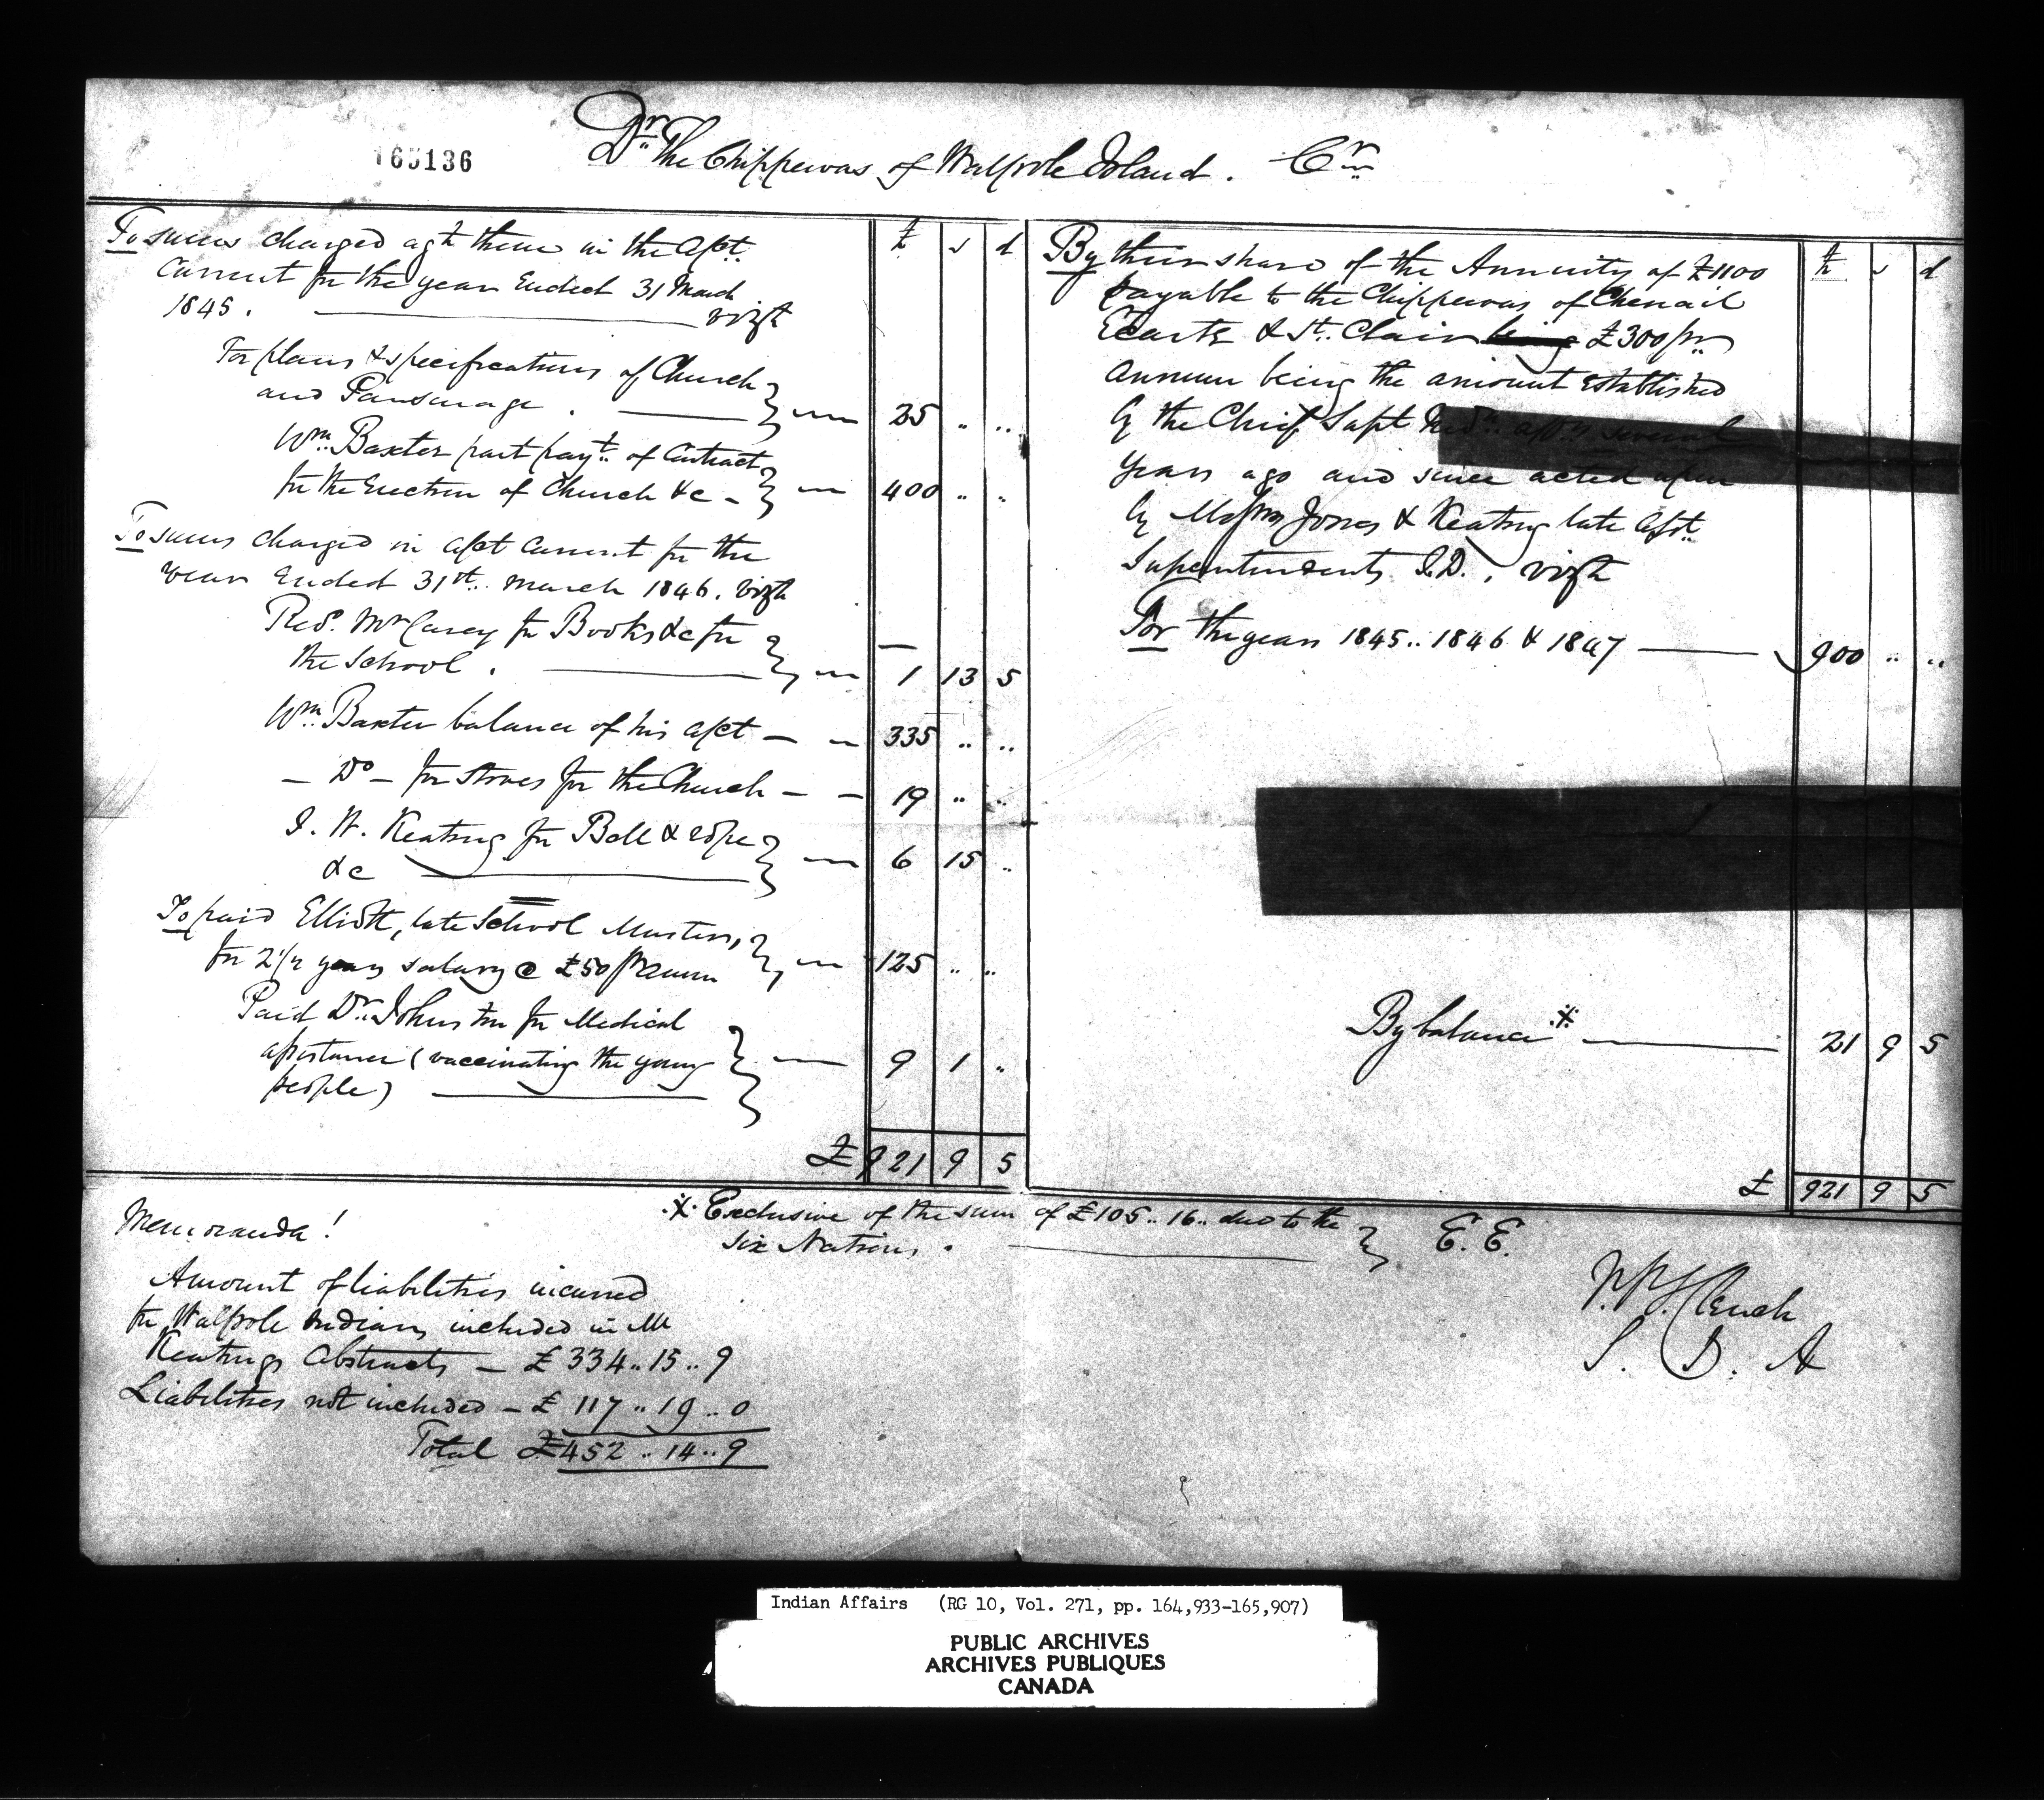 165136
Dr. The Chippewas of Walpole Island. Cr.
To sums charged agt them in the Acct.
Current for the year Ended 31 March
1845. vizt
For plans & specifications of Church
and Parsonage. 25 " "
Wm. Baxter part payt. of Contract
for the Erection of Church &c - 400 " "
To sums charged in Acct Current for the
year Ended 31st. March 1846. vizt
Revd. Mr Carey for Books &c for
the School. 1 13 5
Wm. Baxter balance of his Acct - - 335 " "
- Do - for Stoves for the Church - - 19 " "
J. W. Keating for Bell & rope
&c 6 15 "
To paid Elliott, late School Master,
for 2 1/2 years salary @ £50 pr annum 125 " "
Paid Dr. Johnston for Medical
assistance (vaccinating the young
people) 9 1 "
£ 921 9 5
£ s d
By their share of the Annuity of £1100
payable to the Chippewas of Chenail
Ecarte & St. Clair being £300 pr.
annum being the amount established
by the Chief Supt Ind. Affrs several
years ago and since acted upon
by Messrs Jones & Keating late Asst.
Superintendents I.D., vizt
For the years 1845.. 1846 & 1847 900 " "
By balance * 21 9 5
£ 921 9 5
* Exclusive of the sum of £105.. 16.. due to the
Six Nations.
E. E.
Clench
S. I. A
Memoranda!
Amount of liabilities incurred
for Walpole Indians included in Mr
Keatings Abstracts - £ 334.. 15.. 9
Liabilities not included - £ 117.. 19.. 0
Total £452.. 14.. 9
Indian Affairs (RG 10, Vol. 271, pp. 164,933-165,907)
PUBLIC ARCHIVES
ARCHIVES PUBLIQUES
CANADA